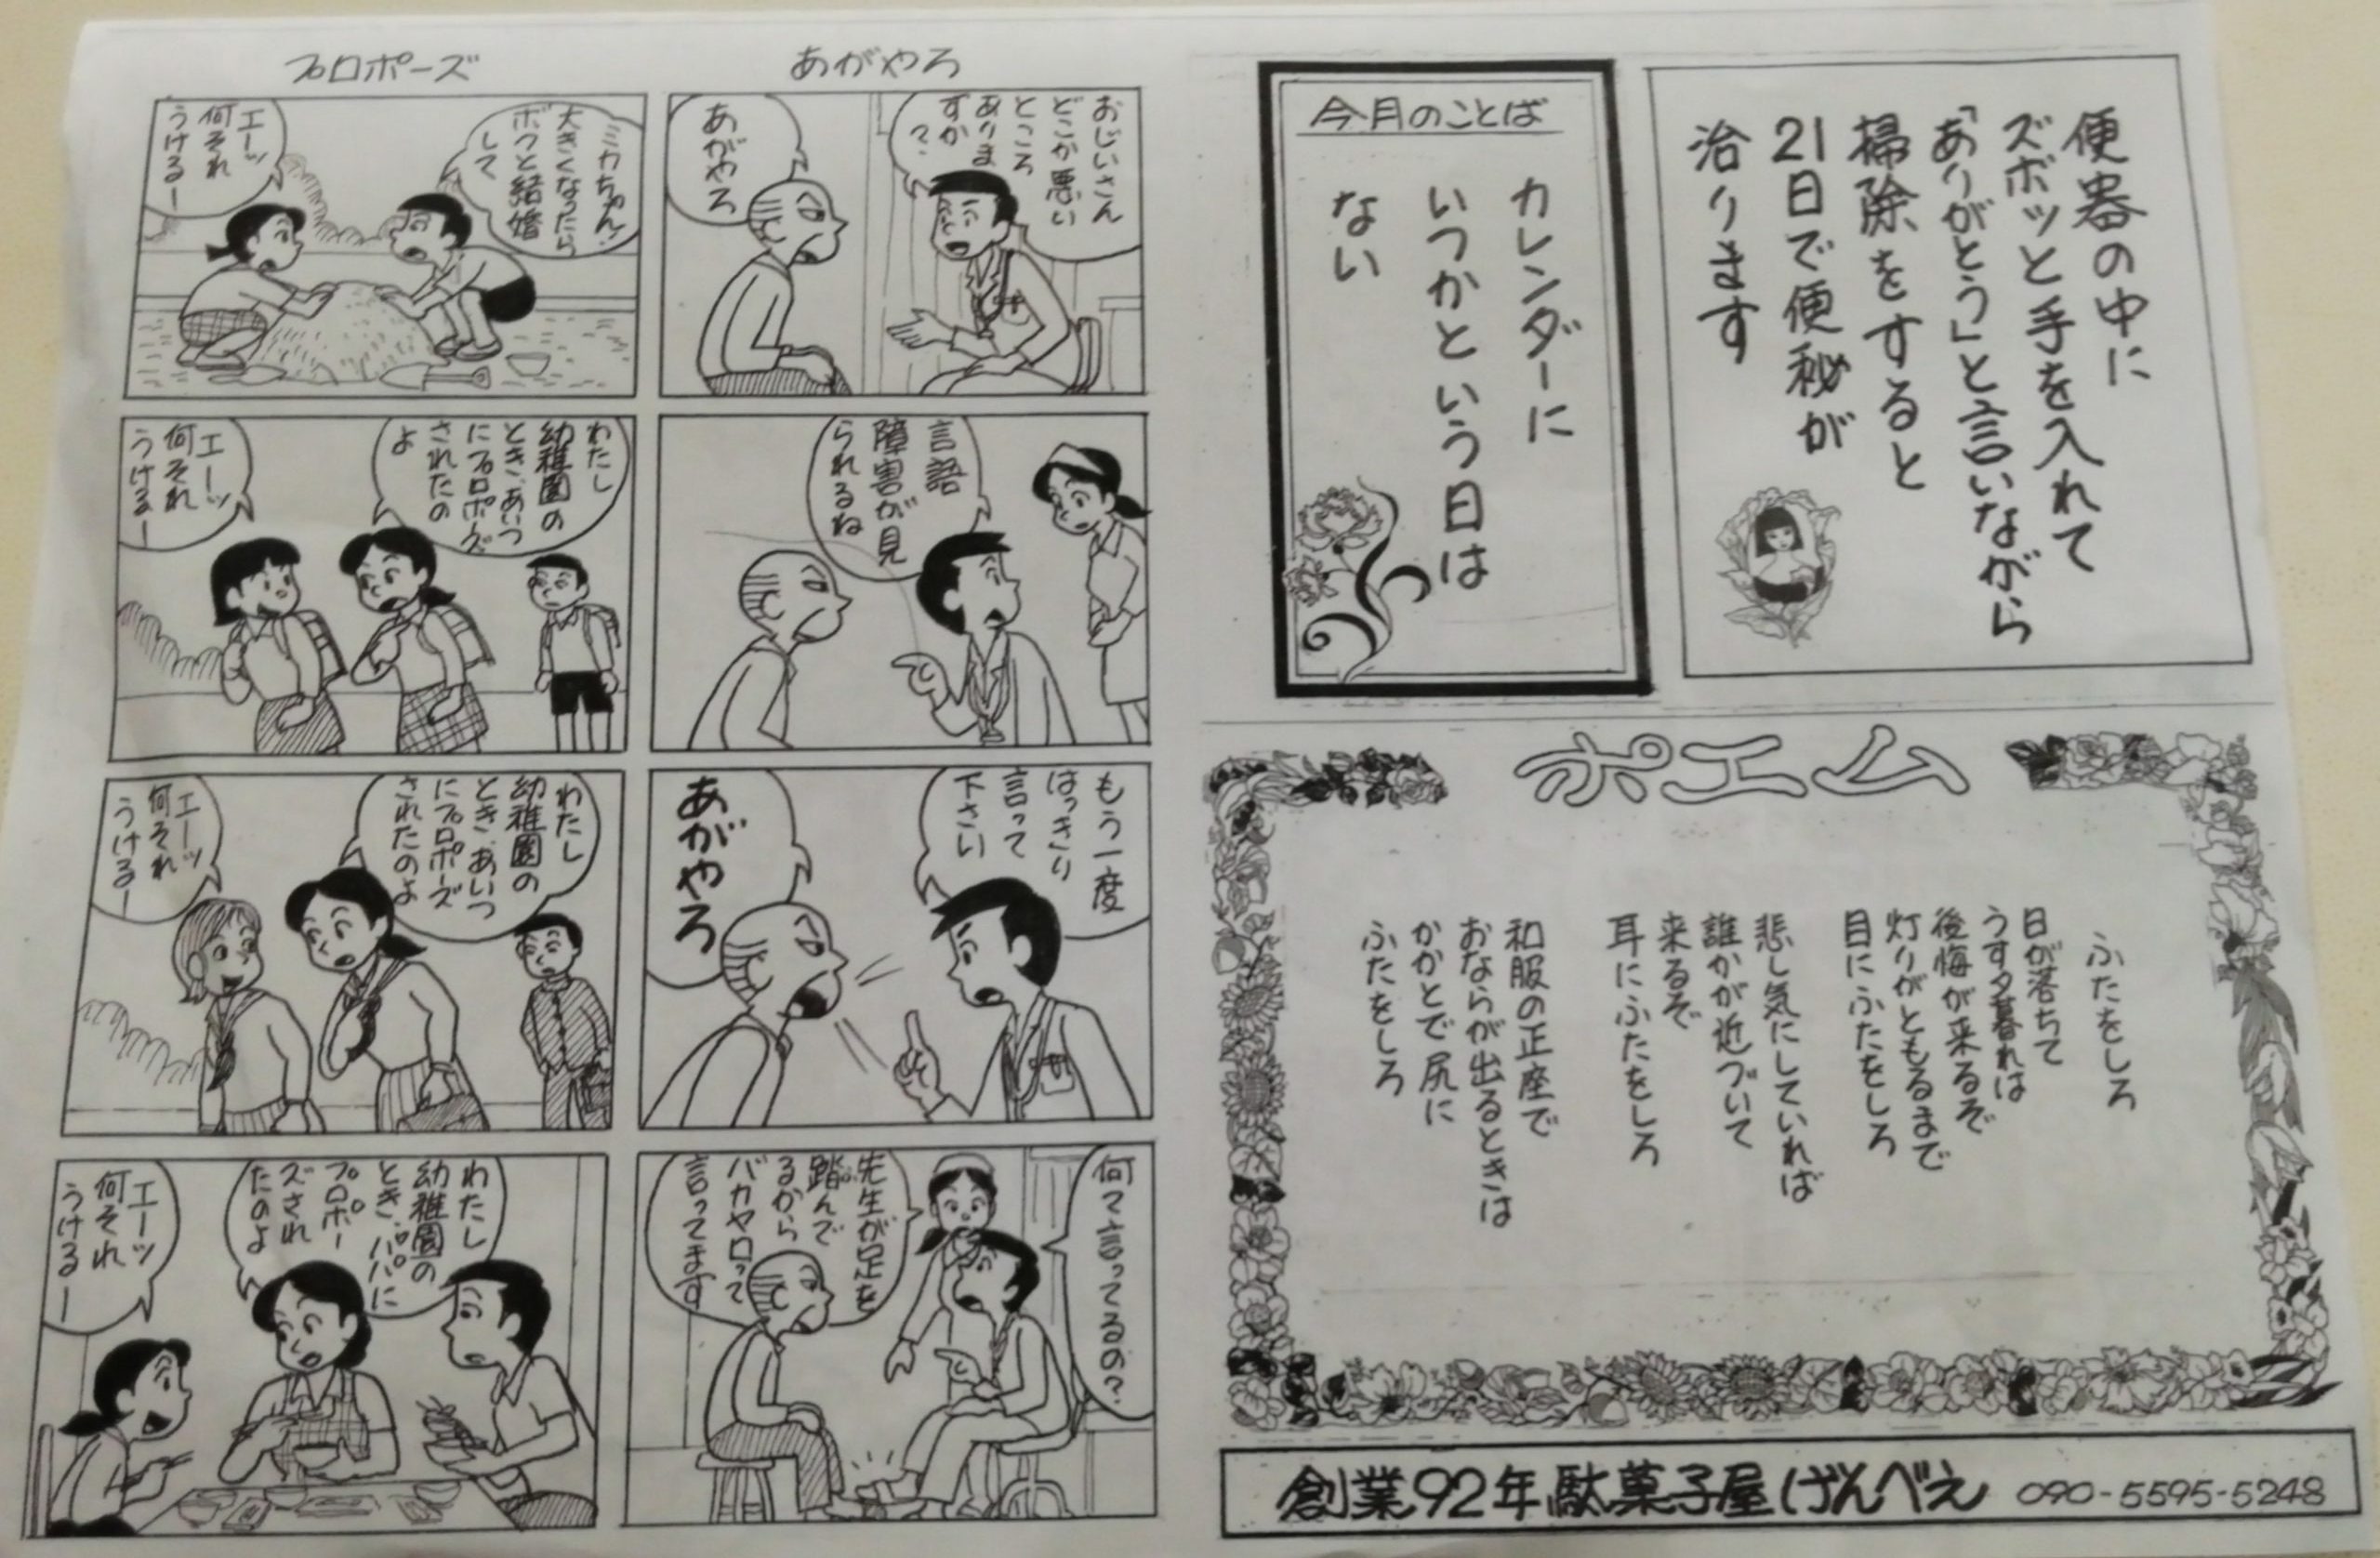 便器の中に
ズボッと手を入れて
「ありがとう」と言いながら
掃除をすると
21日で便秘が
治ります
今月のことば
カレンダーに
いつかという日は
ない
ポエム
ふたをしろ
日が落ちて
うす夕暮れは
後悔が来るぞ
灯りがともるまで
目にふたをしろ
悲し気にしていれば
誰かが近づいて
来るぞ
耳にふたをしろ
和服の正座で
おならが出るときは
かかとで尻に
ふたをしろ
創業92年駄菓子屋げんべえ 090-5595-5248
あがやろ
おじいさん
どこか悪い
ところ
ありま
すか
?
あがやろ
言語
障害が見
られるね
もう一度
はっきり
言って
下さい
あがやろ
何て言ってるの?
先生が足を
踏んで
るから
バカヤロって
言ってます
プロポーズ
ミカちゃん!
大きくなったら
ボクと結婚
して
エーッ
何それ
うけるー
わたし
幼稚園の
とき、あいつ
にプロポーズ
されたの
よ
エーッ
何それ
うけるー
わたし
幼稚園の
とき、あいつ
にプロポーズ
されたのよ
エーッ
何それ
うけるー
わたし
幼稚園の
とき、パパに
プロポー
ズされ
たのよ
エーッ
何それ
うけるー